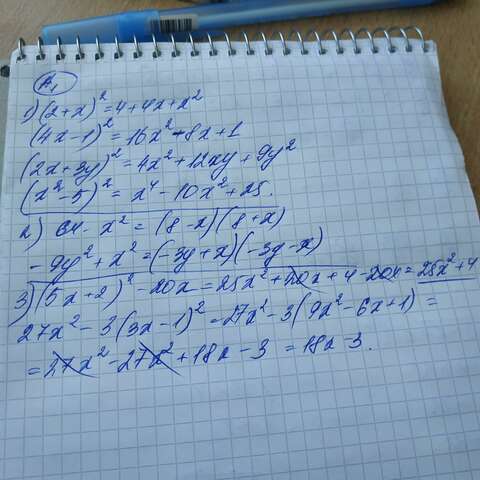 A₁
1) (2+x)² = 4+4x+x²
(4x-1)² = 16x² - 8x+1
(2x+3y)² = 4x²+12xy+9y²
(x²-5)² = x⁴ - 10x²+25.
2) 64 - x² = (8-x)(8+x)
- 9y²+x² = (-3y+x)(-3y-x)
3) (5x+2)² - 20x = 25x²+20x+4-20x = 25x²+4
27x² - 3(3x-1)² = 27x² - 3(9x²-6x+1) =
= 27x² - 27x² + 18x - 3 = 18x-3.